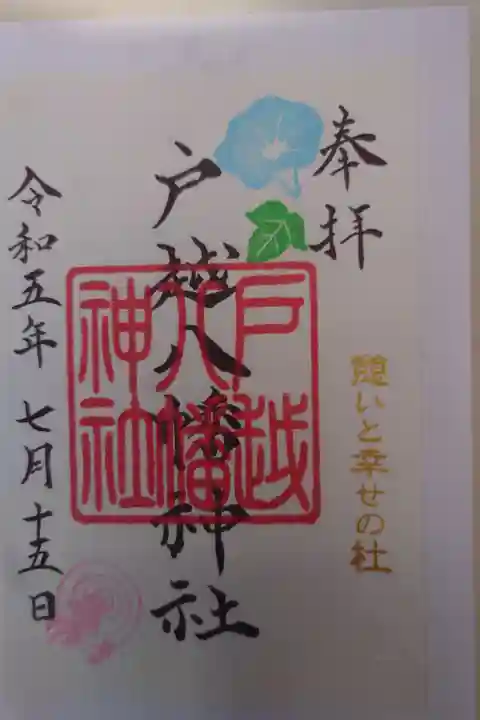 奉拝
憩いと幸せの杜
戸越八幡神社
戸越八幡神社
令和五年七月十五日